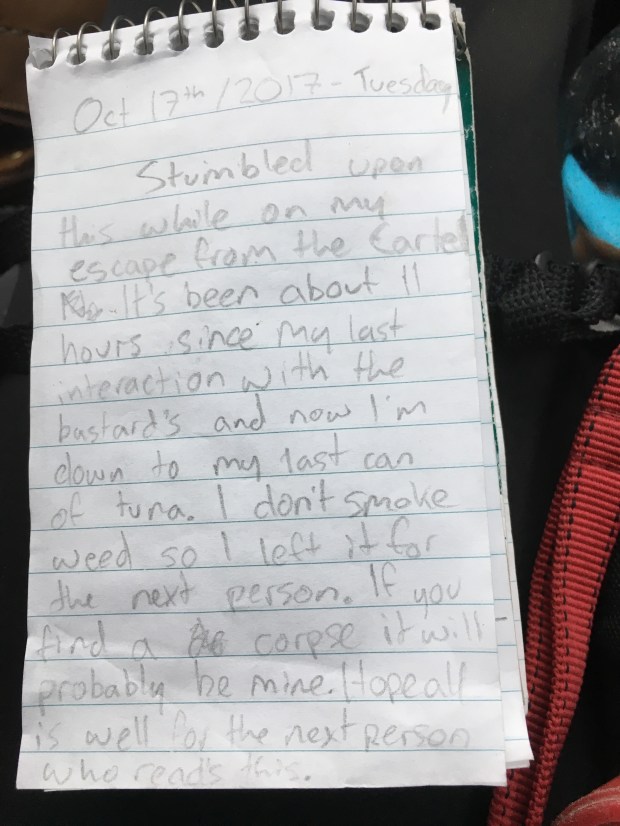 Oct 17th / 2017 - Tuesday
Stumbled upon
this while on my
escape from the Cartel
It's been about 11
hours since my last
interaction with the
bastard's and now I'm
down to my last can
of tuna. I don't smoke
weed so I left it for
the next person. If you
find a corpse it will
probably be mine. Hope all
is well for the next person
who read's this.